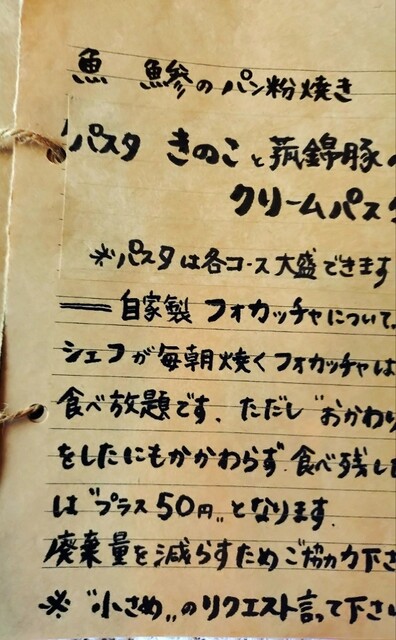 魚 鯵のパン粉焼き
パスタ きのこと菰錦豚の
クリームパスタ
※パスタは各コース大盛できます
══ 自家製 フォカッチャについて。
シェフが毎朝焼くフォカッチャは
食べ放題です。ただし"おかわり
をしたにもかかわらず 食べ残した
は"プラス50円"となります.
廃棄量を減らすためご協力下さ
※"小さめ"のリクエスト言って下さい